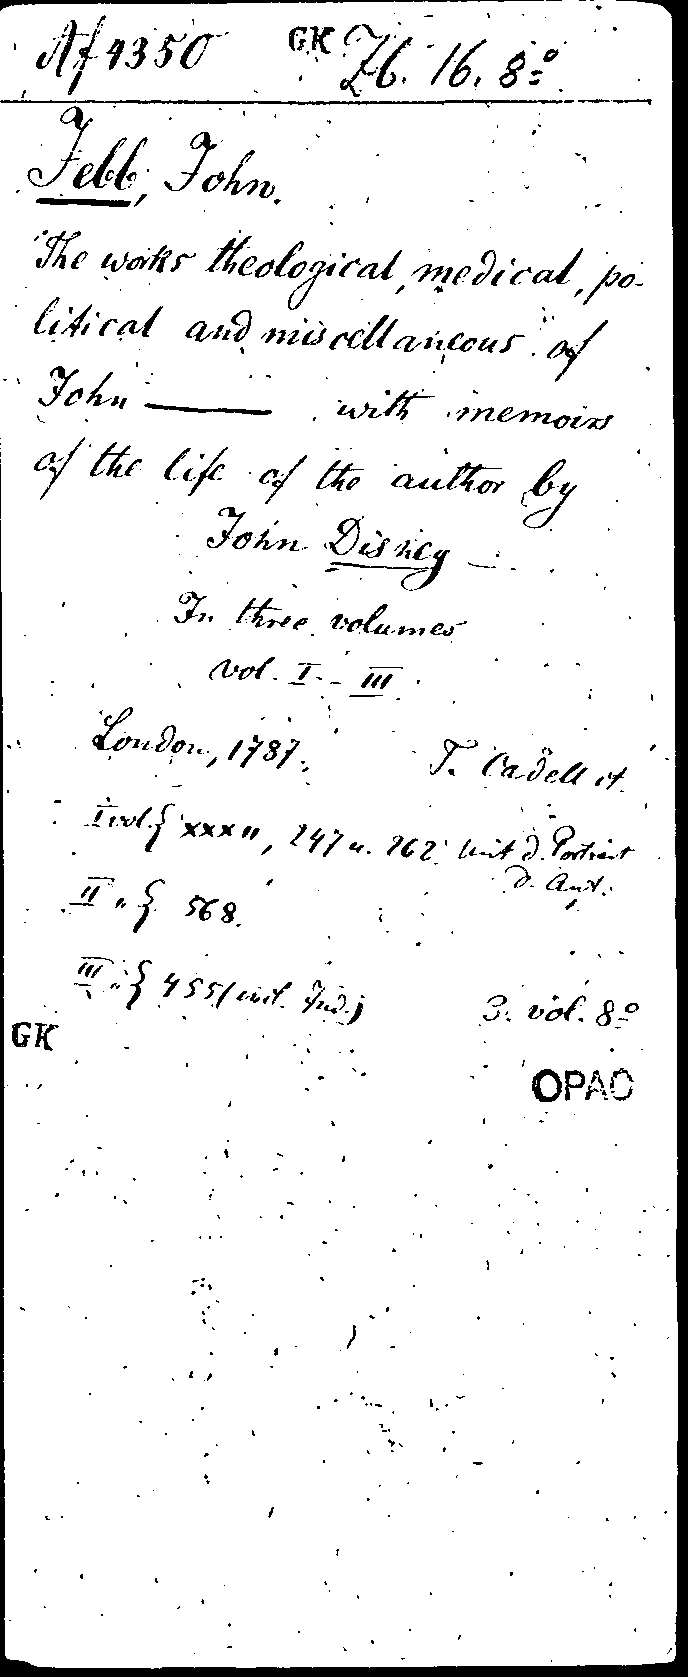 Af 4350 GK Zb. 16. 8º
Jebb, John.
The works theological, medical, po-
litical and miscellaneous of
John —— with memoirs
of the life of the author by
John Disney
In three volumes
vol. I - III
London, 1787. T. Cadell et
I vol. S XXXII, 247 u. 262 mit d. Portrait
d. Aut.
II " S 568.
III " S 455 (incl. Ind.) 3. vol. 8º
GK
OPAC